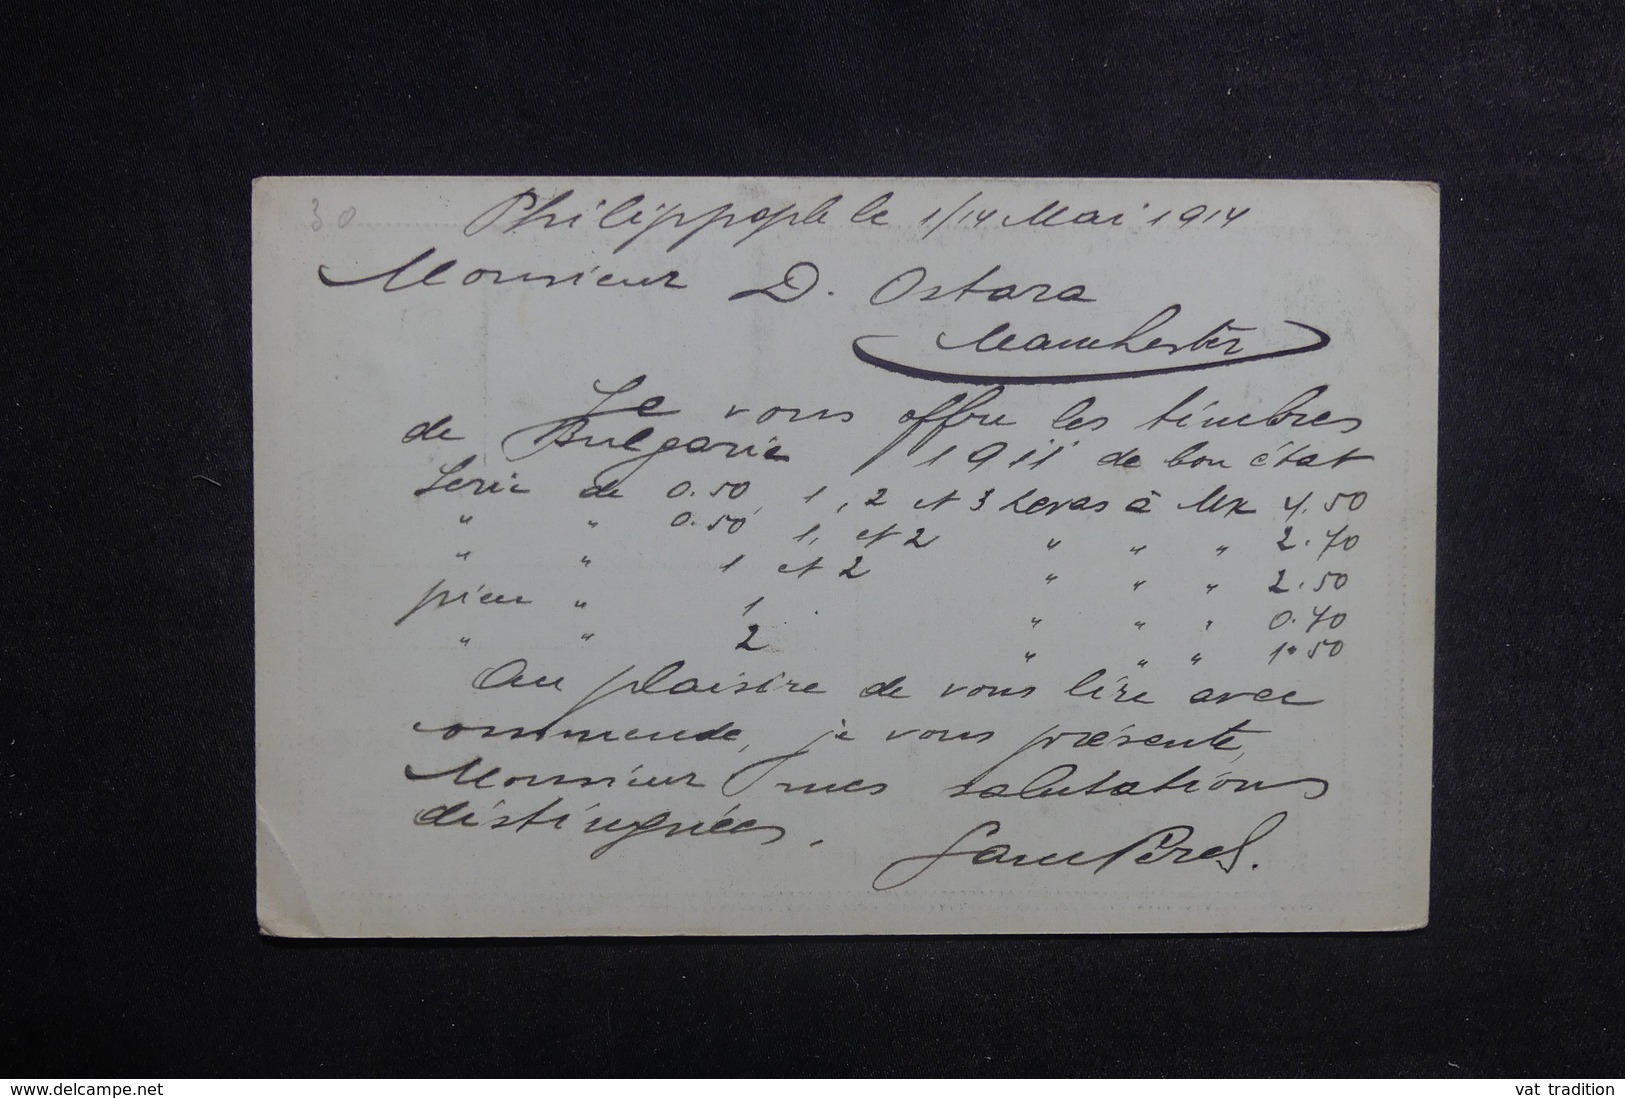 30
Philippople le 1/14 Mai 1914
Monsieur D. Ostara
Manchester
Je vous offre les timbres
de Bulgarie 1911 de bon état
Serie de 0.50, 1, 2 et 3 Levas à Mk 4.50
" " 0.50, 1, et 2 " " " 2.70
" " 1 et 2 " " " 2.50
pièce " 1 " " " 0.70
" " 2 " " " 1.50
Au plaisire de vous lire avec
commende, je vous présente,
Monsieur mes salutations
distinguées.
Sam Perel.
www.delcampe.net
vat tradition